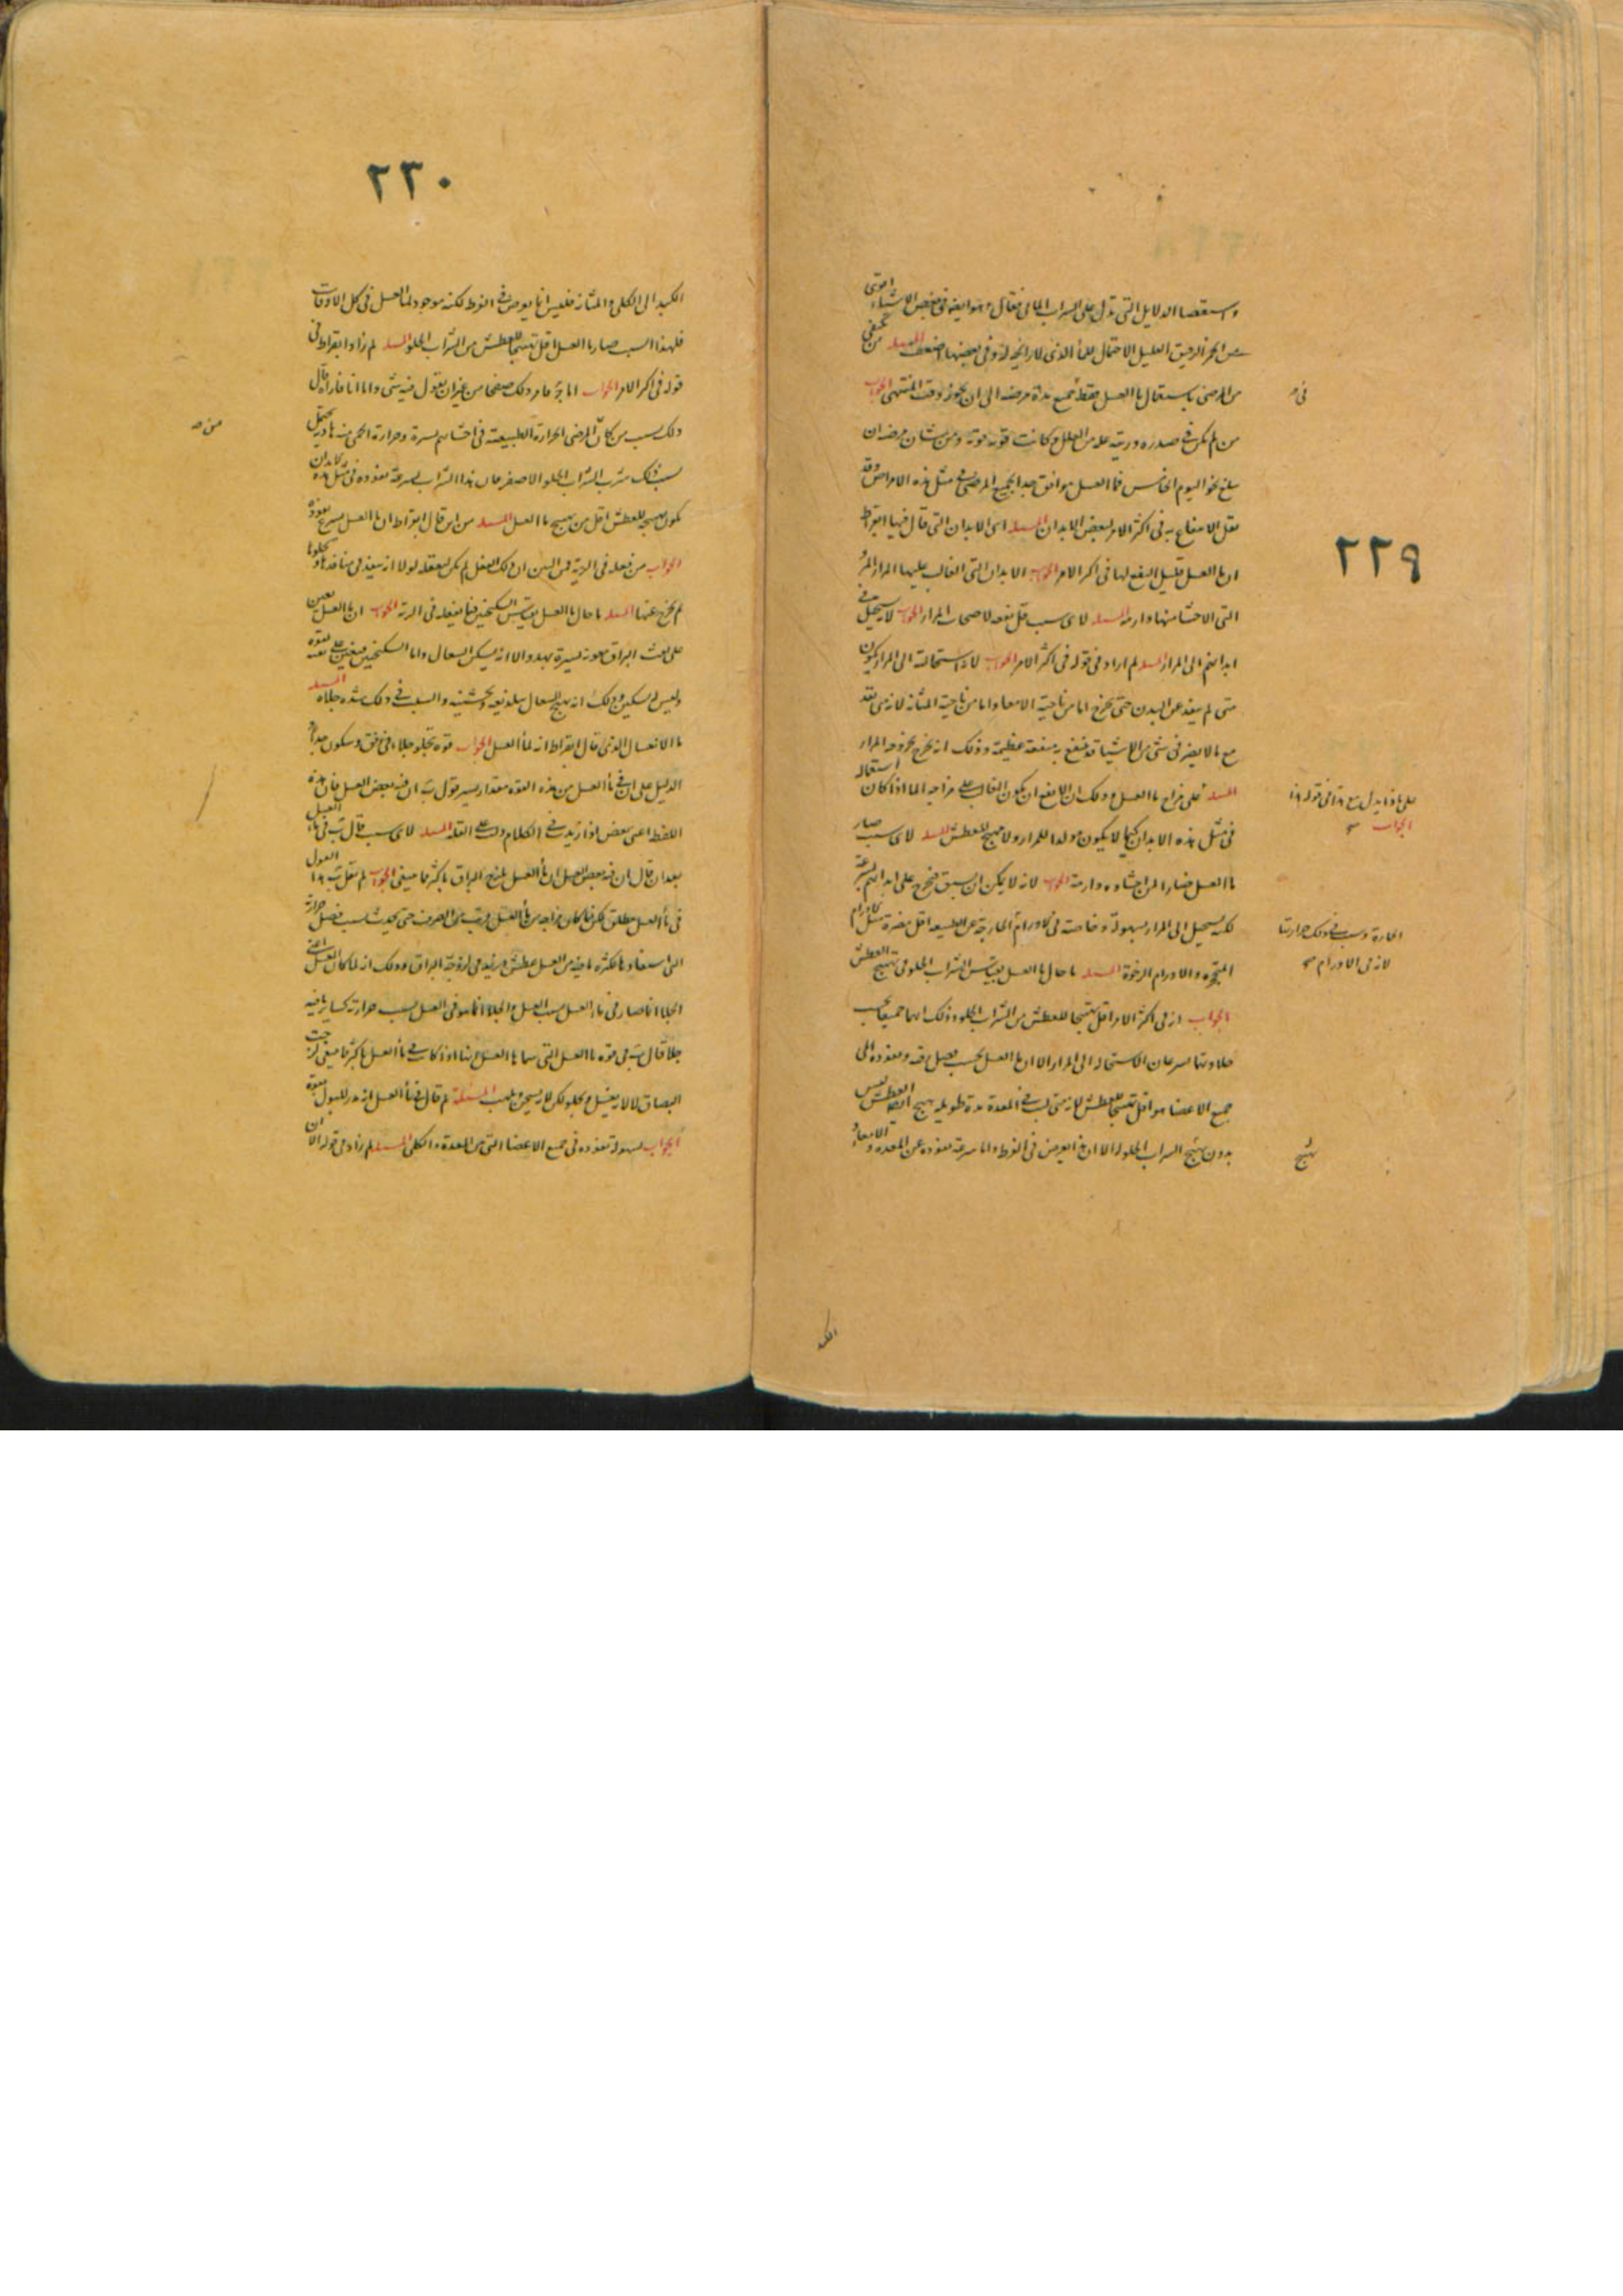 واستقصا الدلايل التي تدل على الشراب المائي فقال وهو ايضه في بعض الاشياء اقوى
من الخمر الرقيق القليل الاحتمال للماء الذي لا رايحة له وفي بعضها اضعف المسله من يكتفي
من المرضى باستعمال ما العسل فقط جميع مدة مرضه الى ان يجوز وقت المنتهى الجواب
من لم يكن في صدره وريته علة من العلل وكانت قوته قوية ومن شان مرضه ان
يبلغ نحو اليوم الخامس فما العسل موافق جدا لجميع المرضى في مثل هذه الامراض وقد
يقل الانتفاع به في اكثر الامر لبعض الابدان المسله اي الابدان التي قال فيها ابقراط
ان ما العسل قليل النفع لها في اكثر الامر الجواب الابدان التي الغالب عليها المرار المر
التي الاحشا منها وارمة المسله لاي سبب قل نفعه لاصحاب المرار الجواب لانه يستحيل في
ابدانهم الى المرار المسله لم اراد في قوله في اكثر الامر الجواب لان استحالته الى المرار يكون
متى لم ينفذ عن البدن حتى يخرج اما من ناحية الامعا واما من ناحية المثانة لانه متى نفذ
مع ما لا يضر في شي من الاشيا قد ينفع به منفعة عظيمة وذلك انه يخرج بخروجه المرار
المسله على مزاج ما العسل وذلك ان الانفع ان يكون الغالب على مزاجه الما اذا كان استعماله
في مثل هذه الابدان كيما لا يكون مولدا للمرار ولا مهيج للعطش المسله لاي سبب صار
ما العسل ضارا لمن احشاوه وارمة الجواب لانه لا يمكن ان يسبق فيخرج على ابدانهم بسرعة
لكنه يستحيل الى المرار بسهولة وخاصة في الاورام الخارجة عن الطبيعه اقل مضرة مثل الاورام
المتحجره والاورام الرخوة المسله ما حال ما العسل بقياس الشراب الحلو في تهييج العطش
الجواب انه في اكثر الامر اقل تهييجا للعطش من الشراب الحلو وذلك انهما جميعا بحسب
حلاوتهما يسرعان الاستحاله الى المرار الا ان ما العسل بحسب وصوله ونفوذه الى
جميع الاعضا هو اقل تهييجا للعطش لانه متى لبث في المعدة مدة طويله يهيج العطش ليس
بدون تهييج الشراب الحلو له الا ان هذا يعرض في الفرط واما سرعة نفوذه عن المعده والامعاء
في
٢٢٩
على ماذا يدل مع هذا في قوله هذا
الجواب
الحارة وسبب ذلك حرارتها
لانه في الاورام
تهيج
الكبد
٢٣٠
الكبد الى الكلى والمثانة فليس انما يعرض في الفرط لكنه موجود لما العسل في كل الاوقات
فلهذا السبب صار ما العسل اقل تهييجا للعطش من الشراب الحلو المسله لم زاد ابقراط في
قوله في اكثر الامر الجواب اما قوم فامروا ذلك صفحا من غير ان يقول فيه شي واما انا فاراه قال
ذلك بسبب من كان المرضى الحرارة الطبيعية في احشائهم يسيرة وحرارة الحمى منه هادية يحتمل
بسبب ذلك شرب الشراب الحلو الاصفر فان هذا الشراب لسرعة نفوذه في مثل هذه الابدان
يكون تهييجه للعطش اقل من تهييج ما العسل المسله من اين قال ابقراط ان ما العسل يسرع نفوذه
الجواب من فعله في الرية فمن البين ان ذلك الفعل لم يكن ليفعله لولا انه ينفذ في منافذها ويجلوها
لم يخرج عنها المسله ما حال ما العسل بقياس السكنجبين فيما يفعله في الرية الجواب ان ما العسل يعين
على نفث البزاق معونة يسيرة بهدو الا انه يسكن السعال واما السكنجبين فيعين على نفثه بقوة
وليس له تسكين وذلك انه يهيج السعال بتلذيعه وتخشينه والسبب في ذلك شده جلاه المسله
ما الافعال الذي قال ابقراط انه لما العسل الجواب قوة تجلو جلاء في رفق وسكون جدا
الدليل على ان في ما العسل من هذه القوة مقدار يسير قول بق ان فيه بعض الغسل فان هذه
اللفظه اعني بعض اذا زيدت في الكلام دلت على القلة المسله لاي سبب قال بق في ماء العسل
بعد ان قال ان فيه بعض الغسل ان ما العسل يمنع البزاق باكثر مما ينبغي الجواب لم يقل بق هذا القول
في ما العسل مطلق لكن فيما كان مزاجه من ما العسل قريب من الصرف حتى يحدث بسبب فضل حرارة
التي استفادها لكثرة ما فيه من العسل عطش ويزيد في لزوجة البزاق وذلك انه لما كان العسل اعني
الجلا انما صار في ماء العسل بسبب العسل والجلا انما هو في العسل بسبب حرارته كساير ما فيه
جلا قال بق في قوة ما العسل التي سماها الغسل ههنا اذا كانت في ما العسل باكثر مما ينبغي لزجت
البصاق لا لانه يغسل ويجلو لكن لانه يسخن ويلهب المسئلة لم قال في ماء العسل انه يدر للبول بقوة
الجواب لسهولة نفوذه في جميع الاعضا التي بين المعدة والكلى المسله لم زاد في قوله الا ان